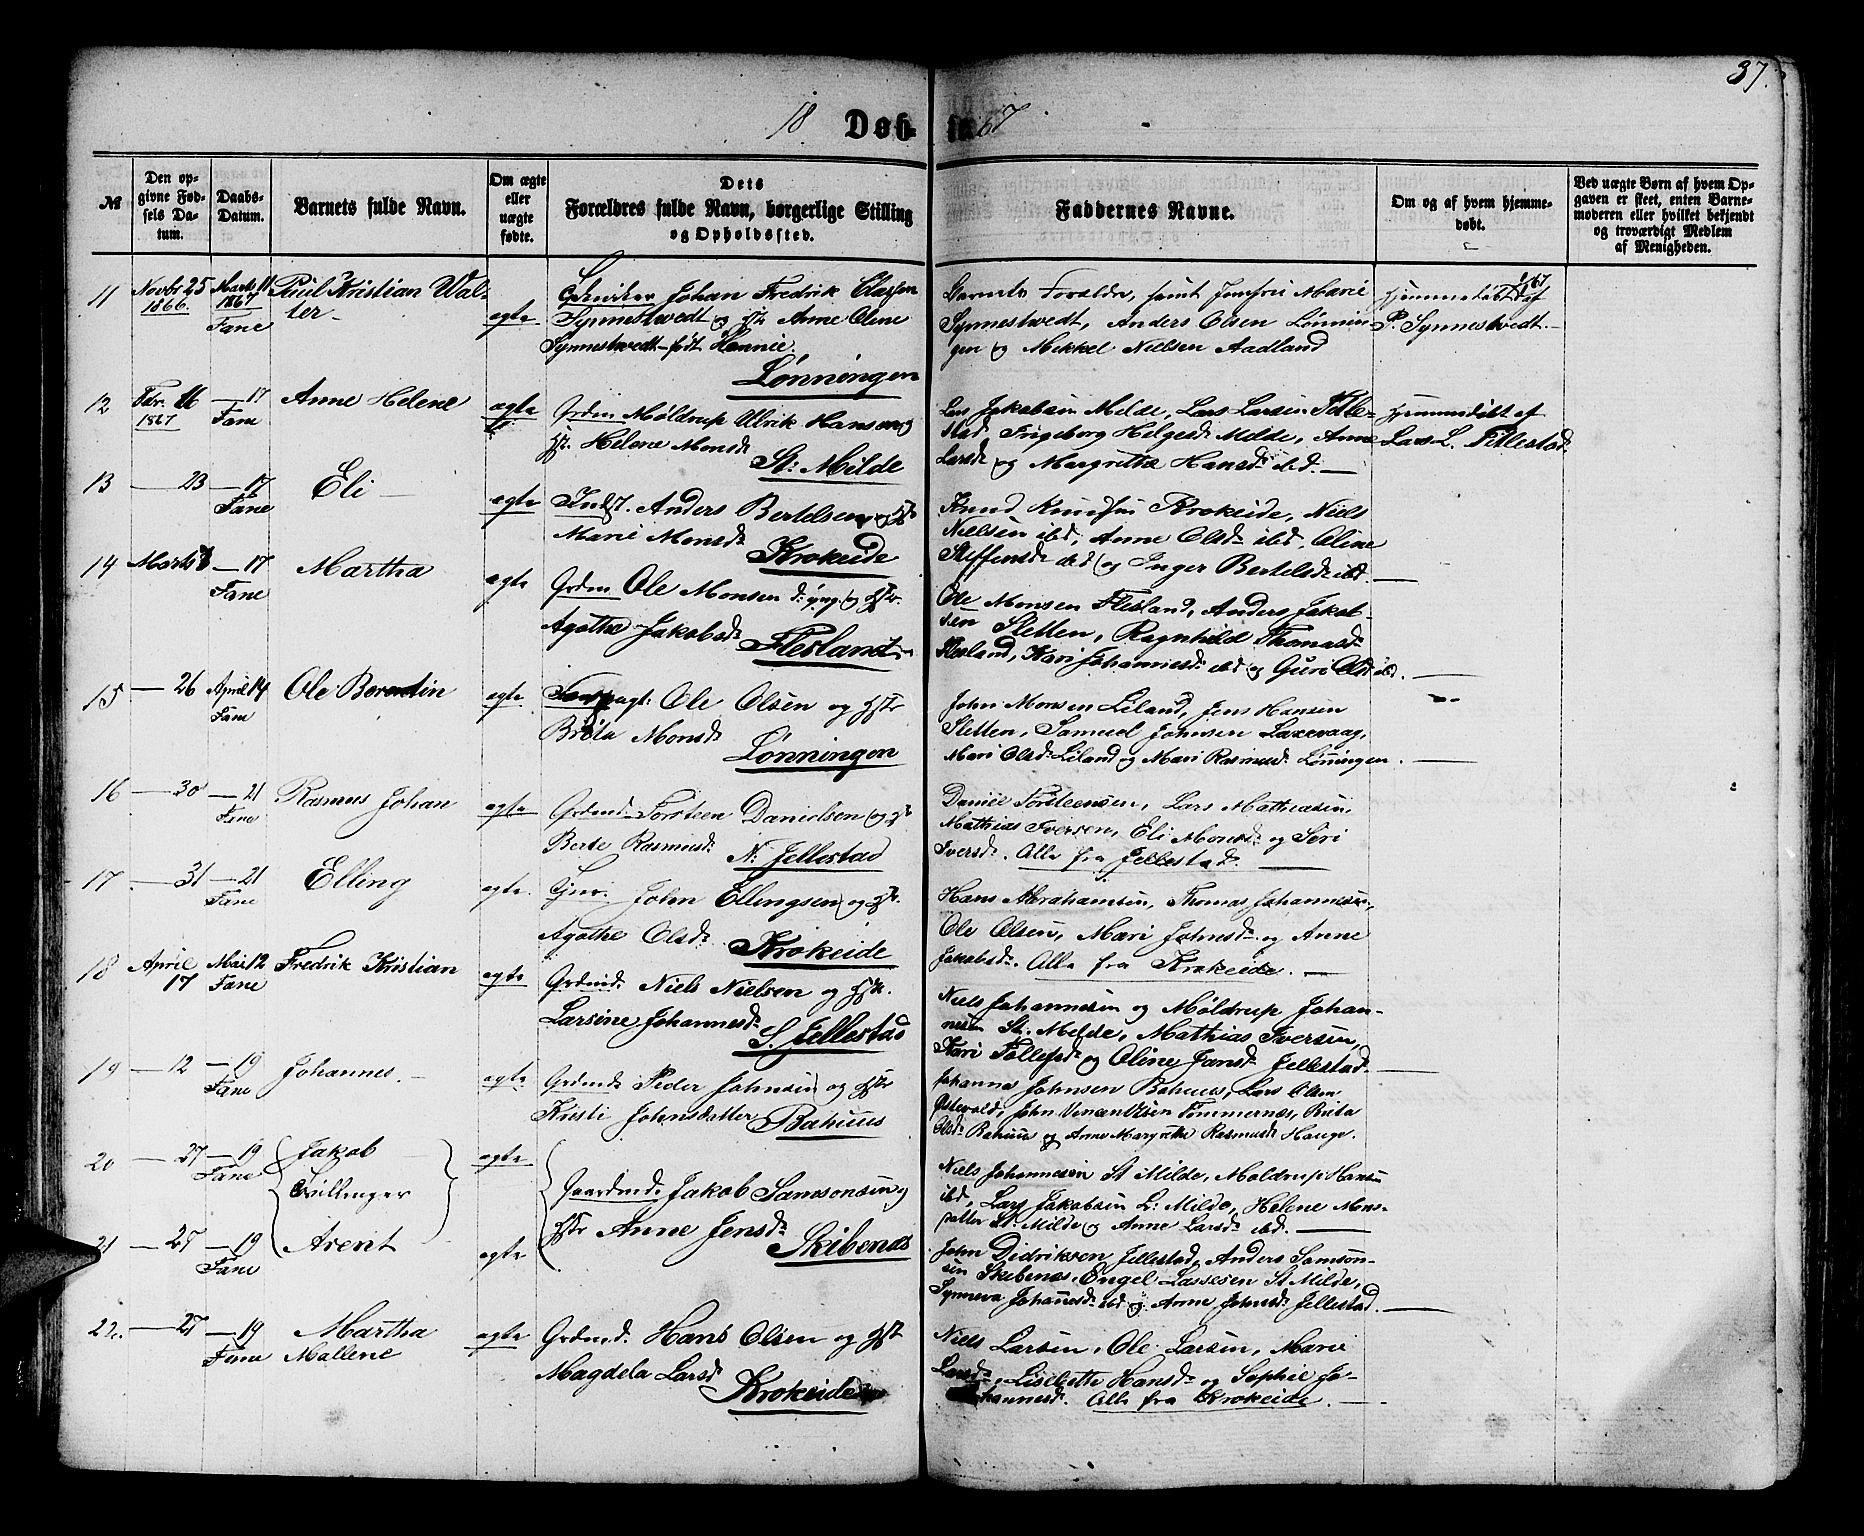 37.
18 Døb-te 67
№
Den op-
givne Fød-
sels Da-
tum.
Daabs-
Datum.
Barnets fulde Navn.
Om ægte
eller
uægte
fødte.
Dets
Forældres fulde Navn, borgerlige Stilling
og Opholdssted.
Faddernes Navne.
Om og af hvem hjemme-
døbt.
Ved uægte Børn af hvem Op-
gaven er skeet, enten Barne-
moderen eller hvilket bekjendt
og troværdigt Medlem
af Menigheden.
11 Novbr 25 1866. Marts 11 1867 Fane
Paul Kristian Wal-
ter.
ægte
Johan Fredrik Classen
Synnestwedt og Hstr Anne Oline
Synnestwedt født
Lønningen
Barnets Forældre, samt Jomfru Marie
Synnestwedt, Anders Olsen Lønnin-
gen og Mikkel Nielsen Aadland
Hjemmedøbt af
P. Synnestvedt.
12 Febr. 11 1867 — 17 Fane
Anne Helene
ægte
Grdm. Møldrup Ulrik Hansen og
Hstr. Helene Monsd.
St: Milde
Lars Jakobsen Milde, Lars Larsen Title-
stad Ingeborg Helgesd. Milde, Anne
Larsd. og Margrethe Hansd. ibd. —
Hjemmedøbt af
Lars L. Titlestad
13 — 23 — 17 Fane
Eli —
ægte
Indst. Anders Bertelsen og Hstr
Marie Monsd.
Krokeide
Knud Knudsen Krokeide, Niels
Nielsen ibd, Anne Olsd. ibd. Oline
Steffensd. ibd og Inger Bertelsd. ibd. —
14 Marts — 17 Fane
Martha
ægte
Grdm Ole Monsen d: yng. og Hstr.
Agathe Jakobsd.
Flesland
Ole Monsen Flesland, Anders Jakob-
sen Sletten, Ragnhild Thomasd.
Flesland, Kari Johannesd. ibd og Guri Olsd. ibd. —
15 — 26 April 14 Fane
Ole Berentin
ægte
Ole Olsen og Hstr
Brita Monsd.
Lønningen
John Monsen Liland, Jens Hansen
Sletten, Samuel Johnsen Laxevaag,
Mari Olsd. Liland og Mari Rasmusd. Lønningen. —
16 — 30 — 21 Fane
Rasmus Johan
ægte
Grdmd. Torsteen Danielsen og Hstr
Berte Rasmusd.
N: Jellestad
Daniel Torsteensen, Lars Mathiasen,
Mathias Iversen, Eli Monsd. og Seri
Iversd. Alle fra Jellestad. —
17. — 31 — 21 Fane
Elling
ægte.
John Ellingsen og Hstr.
Agathe Olsd.
Krokeide
Hans Abrahamsen, Thomas Johannesen,
Ole Olsen, Mari Johnsd. og Anne
Jakobsd. Alle fra Krokeide. —
18 April 17 Mai 12 Fane
Fredrik Kristian
ægte
Grdmd. Niels Nielsen og Hstr.
Larsine Johannesd.
S. Jellestad
Niels Johannesen og Møldrup Johan-
nesen St. Milde, Mathias Iversen,
Kari Tollefsd. og Oline Jansd. Jellestad. —
19 — 12 — 19 Fane
Johannes. —
ægte
Grdmd. Peder Johnsen og Hstr
Kristi Johnsdatter
Bahuus
Johannes Johnsen Bahuus, Lars Olsen
Østevold, John Tømmernæs, Brita
Olsd. Bahuus og Anne Margrethe Rasmusd. Hauge.
20 — 27 — 19 Fane
Jakob
Tvillinger
ægte
Gaardmd. Jakob Samsonsen og
Hstr Anne Jensd.
Skibenæs
Niels Johannesen St Milde, Møldrup Hansen
ibd, Lars Jakobsen L: Milde, Helene Mons-
datter St Milde og Anne Larsd. ibd. —
21 — 27 — 19 Fane
Arent
ægte
John Didriksen Jellestad, Anders Samson-
sen Skibenæs, Engel Lassesen St Milde,
Synneva Johannesd. ibd og Anne Johnsd. Jellestad. —
22. — 27 — 19 Fane
Martha
Mallene
ægte
Grdmd. Hans Olsen og Hstr
Magdela Larsd
Krokeide
Niels Larsen, Ole Larsen, Marie
Larsd., Lisebeth Hansd. og Sophie Jo-
hannesd. Alle fra Krokeide. —